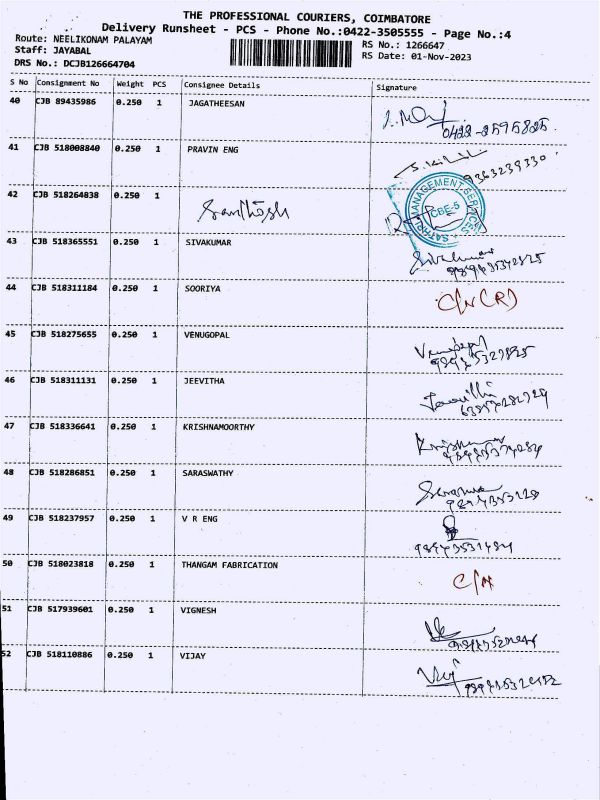 THE PROFESSIONAL COURIERS, COIMBATORE
Delivery Runsheet - PCS - Phone No.:0422-3505555 - Page No.:4
Route: NEELIKONAM PALAYAM
RS No.: 1266647
Staff: JAYABAL
RS Date: 01-Nov-2023
DRS No.: DCJB126664704
S No Consignment No Weight PCS Consignee Details Signature
40 CJB 89435986 0.250 1 JAGATHEESAN
0422-2595825
41 CJB 518008840 0.250 1 PRAVIN ENG
9363239330
42 CJB 518264838 0.250 1 Santhosh
MANAGEMENT SERVICES
CBE-5
43 CJB 518365551 0.250 1 SIVAKUMAR Sivakumar
44 CJB 518311184 0.250 1 SOORIYA C/N (R)
45 CJB 518275655 0.250 1 VENUGOPAL
46 CJB 518311131 0.250 1 JEEVITHA
47 CJB 518336641 0.250 1 KRISHNAMOORTHY
48 CJB 518286851 0.250 1 SARASWATHY
49 CJB 518237957 0.250 1 V R ENG
50 CJB 518023818 0.250 1 THANGAM FABRICATION C/N
51 CJB 517939601 0.250 1 VIGNESH
52 CJB 518110886 0.250 1 VIJAY